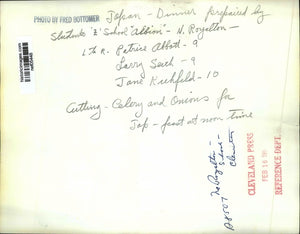 PHOTO BY FRED BOTTOMER
Japan - Dinner prepared by
Students 'E' School "Albion" - N. Royalton
L to R. Patrice Abbott - 9
Larry Seich - 9
Jane Kuchfeld - 10
Cutting - Celery and Onions for
Jap - feast at noon time
No Royalton
School -
CLEVELAND PRESS
FEB 16
REFERENCE DEPT.